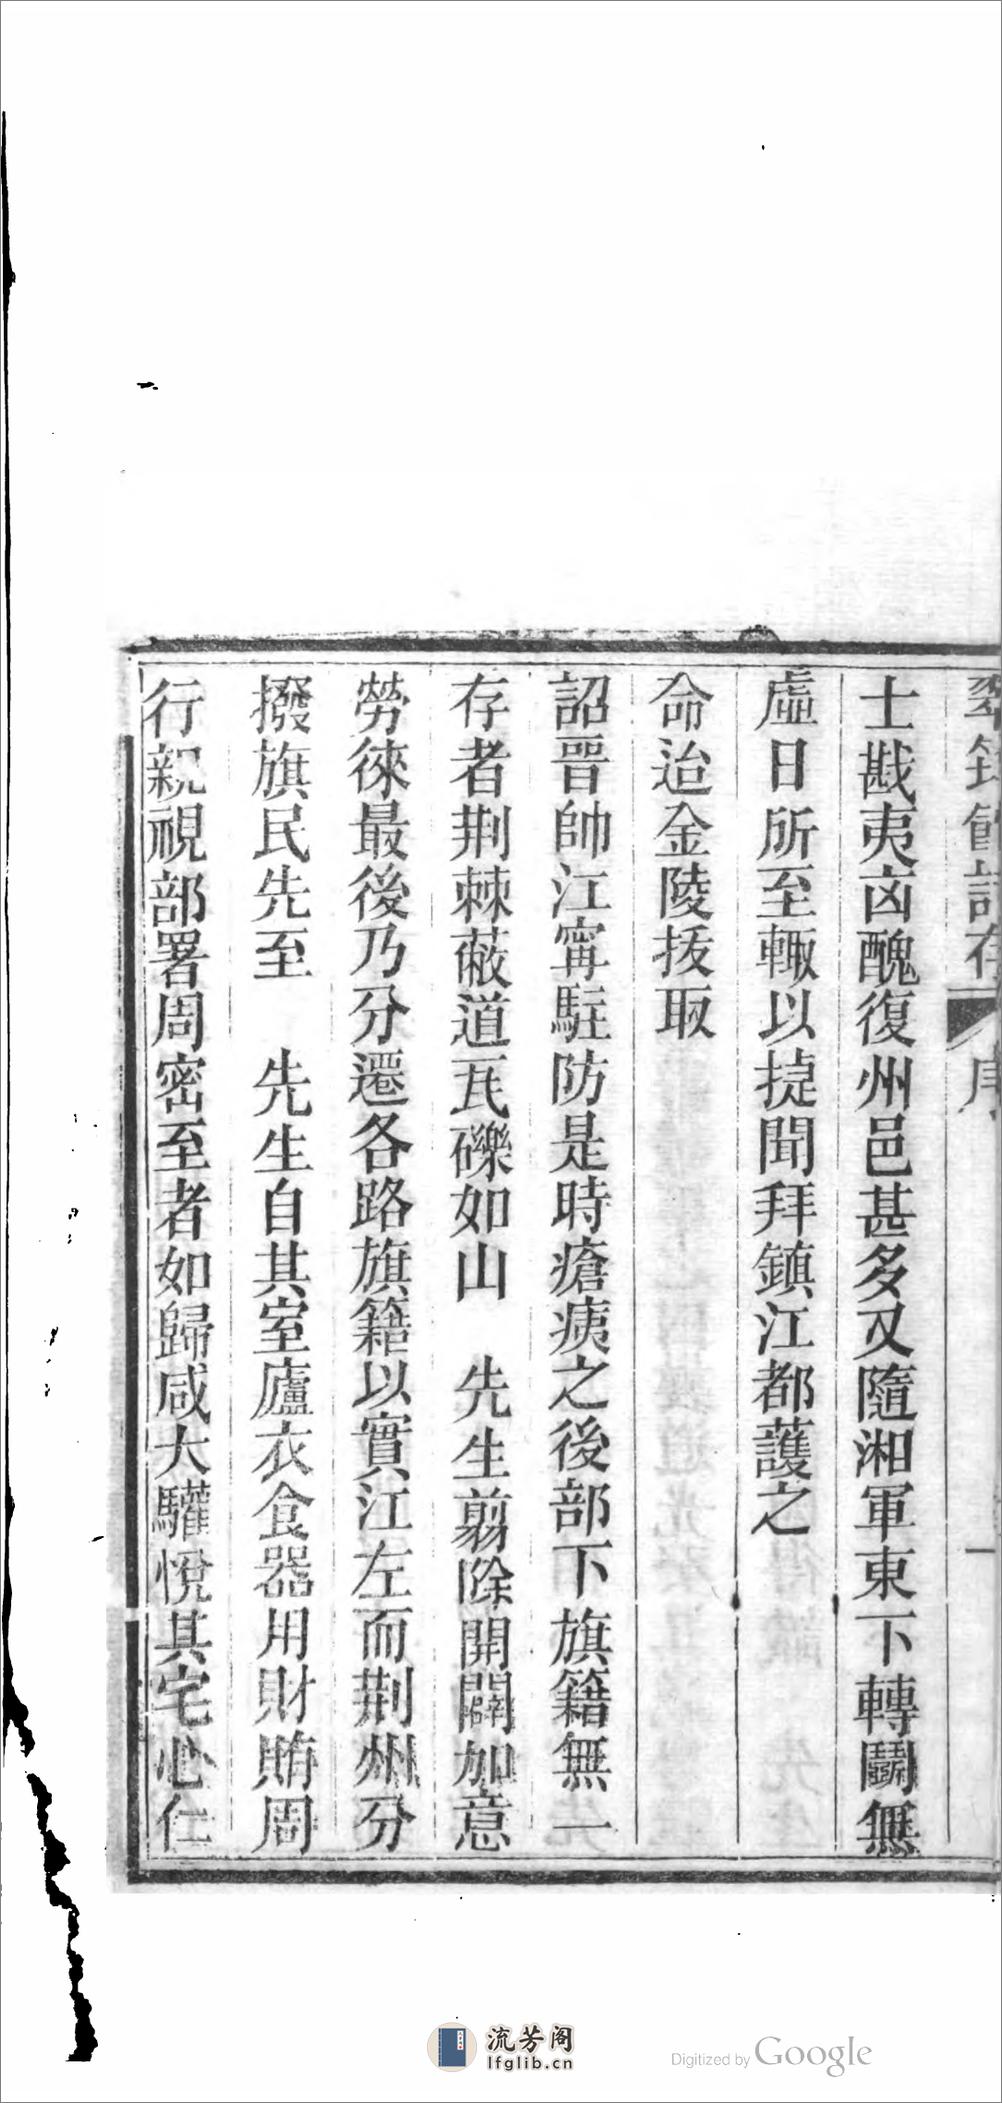 翠筠館詩存 序 一
士戡夷㐫醜復州邑甚多又隨湘軍東下轉鬭無
虛日所至輙以㨗聞拜鎮江都護之
命迨金陵拔取
詔晋帥江寗駐防是時瘡痍之後部下旗籍無一
存者荆棘蔽道瓦礫如山 先生翦除開闢加意
勞徠最後乃分遷各路旗籍以實江左而荆州分
撥旗民先至 先生自其室廬衣食器用財賄周
行親視部署周密至者如歸咸大驩悅其宅心仁
流芳阁
lfglib.cn
Digitized by Google